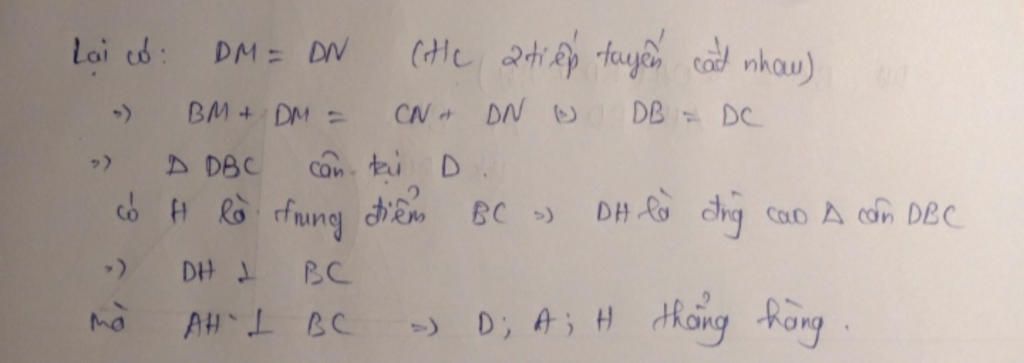 Lại có: DM = DN (t/c 2 tiếp tuyến cắt nhau)
=> BM + DM = CN + DN <=> DB = DC
=> Δ DBC cân tại D.
có H là trung điểm BC => DH là đng cao Δ cân DBC
=> DH ⊥ BC
mà AH ⊥ BC => D; A; H thẳng hàng.